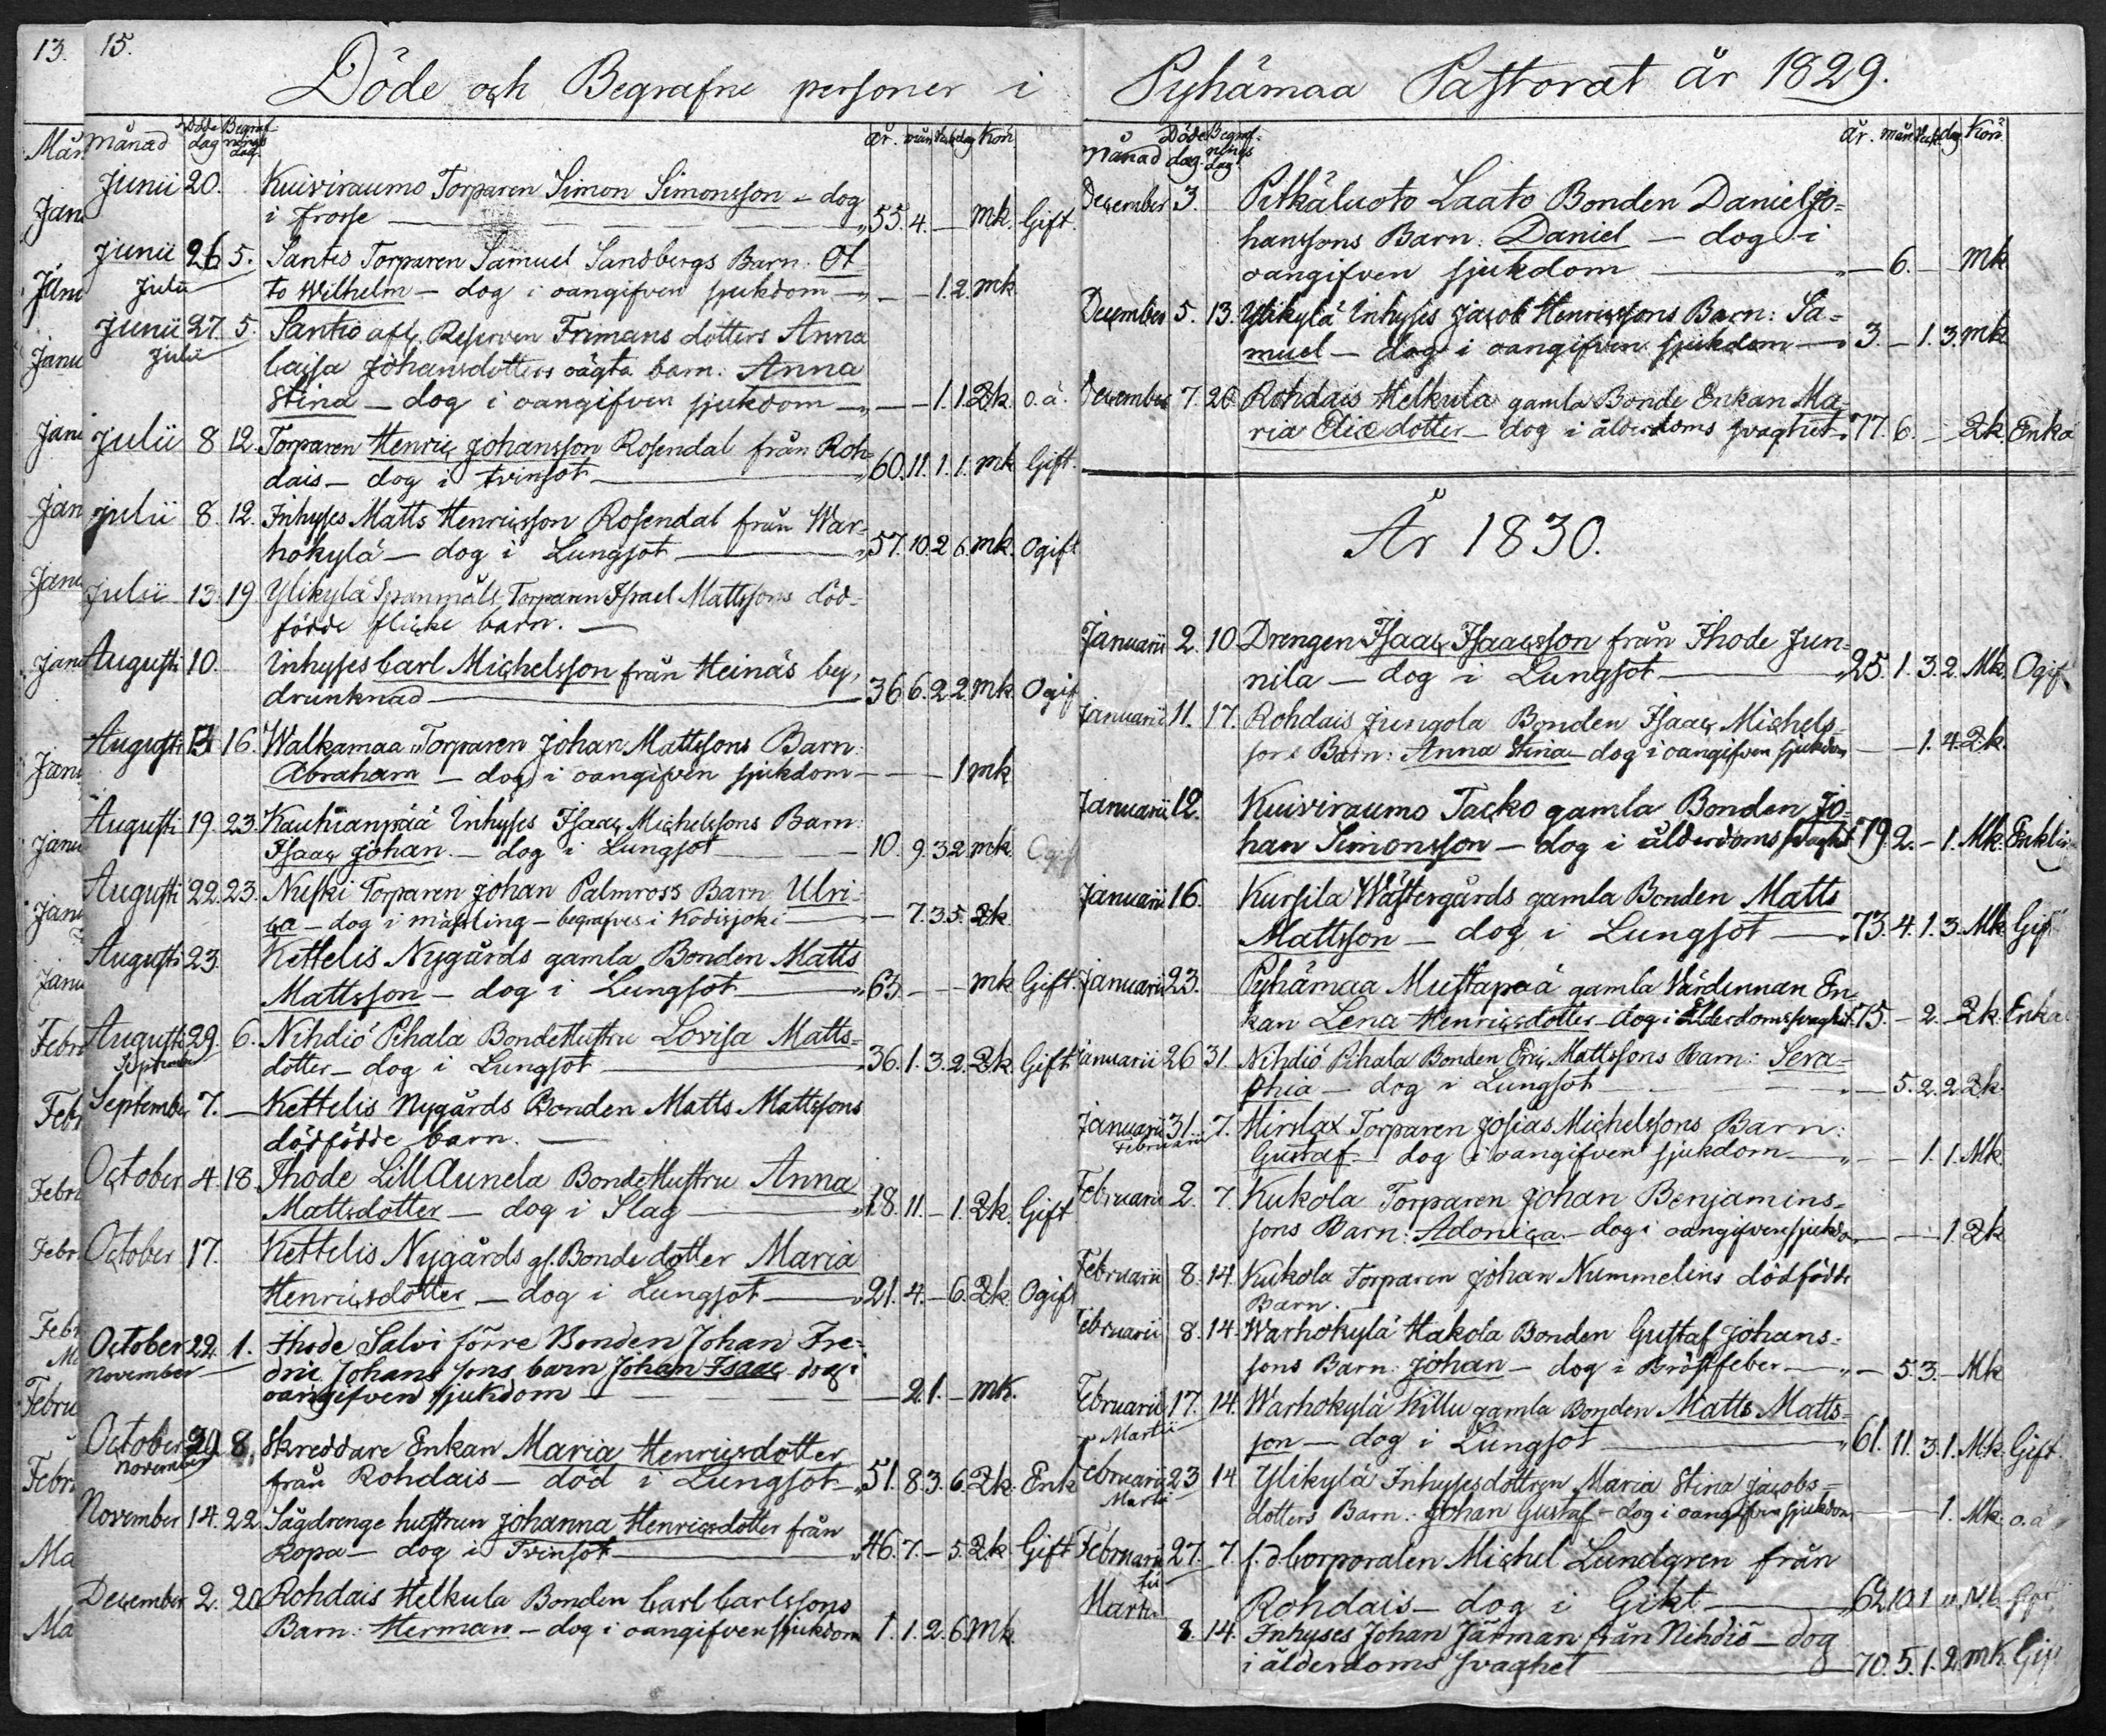 13. 15.
Döde och Begrafne personer i
Månad Döde dag Begrafnings dag År. mån Vek dag Kön
Junii 20. Kuiviraumo Torparen Simon Simonsson - dog
i Frosse — 55. 4. — Mk. Gift.
Junii 26 5. Santis Torparen Samuel Sandbergs Barn. Ot
Julii to Wilhelm — dog i oangifven sjukdom — — — 1. 2. mk
Junii 27. 5. Santio afl. Reserven Frimans dotters Anna
Julii Cajsa Johansdotters oägta barn. Anna
Stina — dog i oangifven sjukdom — — — 1. 1. Qk. o.ä.
Julii 8 12. Torparen Henric Johansson Rosendal från Roh-
dais — dog i tvinsot — 60. 11. 1. 1. mk Gift.
Julii 8. 12. Inhyses Matts Henricsson Rosendal från War-
hokylä — dog i Lungsot — 57. 10. 2 6. mk. Ogift
Julii 13. 19 Ylikylä Torparen Isael Mattssons död-
födde flicke barn. —
Augusti 10. Inhyses Carl Michelsson från Heinäs by,
drunknad — 36 6. 2 2. mk Ogif
Augusti 13 16. Walkamaa Torparen Johan Mattssons Barn:
Abraham — dog i oangifven sjukdom — — — 1 mk
Augusti 19. 23. Kauhianpää Inhyses Isaac Michelssons Barn:
Isaac Johan. — dog i Lungsot — 10. 9. 3 2 mk. Ogif
Augusti 22. 23. Nuski Torparen Johan Palmross Barn Ulri-
ca — dog i mässling — begrafves i Hodisjoki — 7. 3. 5. Qk.
Augusti 23. Kettelis Nygårds gamla Bonden Matts
Mattsson — dog i Lungsot — 63. — — mk Gift.
Augusti 29. 6. Nihdiö Pihala Bonde Hustru Lovisa Matts-
September dotter — dog i Lungsot — 36. 1. 3. 2. Qk. Gift
September 7. — Kettelis Nygårds Bonden Matts Mattssons
dödfödde barn. —
October 4. 18. Ihode LillAunela Bonde Hustru Anna
Mattsdotter — dog i Slag — 18. 11. — 1. Qk. Gift
October 17. Kettelis Nygårds gl. Bonde dotter Maria
Henricsdotter — dog i Lungsot — 21. 4. — 6. Qk. Ogift
October 22. 1. Ihode Salvi förre Bonden Johan Fre-
November dric Johans sons barn Johan Isaac dog i
oangifven sjukdom — — 2. 1. — mk.
October 30. 8. Skreddare Enkan Maria Henricsdotter
November från Rohdais — död i Lungsot — 51. 8. 3. 6. Qk. Enk
November 14. 22 Sågdrenge hustrun Johanna Henricsdotter från
Ropa — dog i Tvinsot — 46. 7. — 5. Qk Gift
December 2. 20 Rohdais Helkula Bonden Carl Carlssons
Barn: Herman — dog i oangifven sjukdom 1. 1. 2. 6 Mk.
Pyhämaa Pastorat år 1829.
Månad Döde dag. Begrafnings dag. År. mån Vek. dag Kön.
December 3. Pitkäluoto Laato Bonden Daniel Jo-
hanssons Barn: Daniel — dog i
oangifven sjukdom — — 6. — mk
December 5. 13. Ylikylä Inhyses Jacob Henricssons Barn: Sa-
muel — dog i oangifven sjukdom — 3. — 1. 3. mk
December 7. 20 Rohdais Helkula gamla Bonde Enkan Ma-
ria Ericsdotter — dog i ålderdoms svaghet. 77. 6. — Qk Enka
År 1830.
Januarii 2. 10. Drengen Isaac Isaacsson från Ihode Jun-
nila — dog i Lungsot — 25. 1. 3. 2. Mk. Ogif
Januarii 11. 17. Rohdais Jungola Bonden Isaac Michels-
sons Barn: Anna Stina — dog i oangifven sjukdom — — 1. 4. Qk.
Januarii 12. Kuiviraumo Tacko gamla Bonden Jo-
han Simonsson — dog i ålderdoms svaghet 79. 2. — 1. Mk. Enkling
Januarii 16. Kursila Wästergårds gamla Bonden Matts
Mattsson — dog i Lungsot — 73. 4. 1. 3. Mk Gift
Januarii 23. Pyhämaa Mustapää gamla Värdinnan En-
kan Lena Henricsdotter — dog i ålderdomssvaghet. 75. — 2. — Qk. Enka
Januarii 26 31. Nihdiö Pihala Bonden Eric Mattssons Barn: Sera-
phia — dog i Lungsot — — 5. 2. 2 Qk.
Januarii 31. 7. Hirslax Torparen Josias Michelssons Barn:
Februarii Gustaf — dog i oangifven sjukdom — — — 1. 1. Mk.
Februarii 2. 7. Kukola Torparen Johan Benjamins-
sons Barn: Adonica — dog i oangifven sjukdo — — 1. Qk
Februarii 8. 14. Kukola Torparen Johan Nummelins dödfödde
Barn.
Februarii 8. 14. Warhokylä Hakola Bonden Gustaf Johans-
sons Barn: Johan — dog i Bröstfeber — — 5. 3. — Mk
Februarii 17. 14. Warhokylä Killu gamla Bonden Matts Matts-
Martii son — dog i Lungsot — 61. 11. 3. 1. Mk. Gift.
Februarii 23 14 Ylikylä Inhyses dottren Maria Stina Jacobs-
Martii dotters Barn: Johan Gustaf — dog i oangifven sjukdom — — 1. Mk. o.ä
Februarii 27. 7. f.d Corporalen Michel Lundgren från
Martii Rohdais — dog i Gikt — 62. 10. 1
8. 14. Inhyses Johan Järman från Nihdiö — dog
i ålderdoms svaghet — 70. 5. 1. 2 mk. Gif